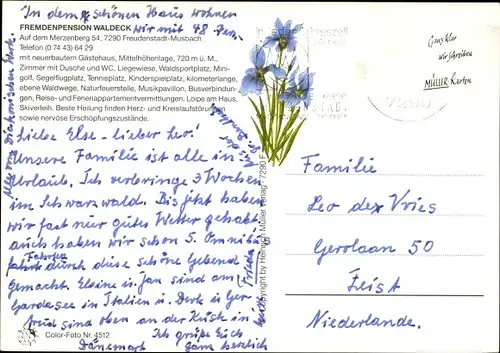 In dem schönen Haus wohnen
wir mit 48 Pers.
FREMDENPENSION WALDECK
Auf dem Merzenberg 54, 7290 Freudenstadt-Musbach
Telefon (0 74 43) 64 29
mit neuerbautem Gästehaus, Mittelhöhenlage, 720 m ü. M.,
Zimmer mit Dusche und WC, Liegewiese, Waldsportplatz, Mini-
golf, Segelflugplatz, Tennisplatz, Kinderspielplatz, kilometerlange,
ebene Waldwege, Naturfeuerstelle, Musikpavillon, Busverbindun-
gen, Reise- und Ferienappartementvermittlungen. Loipe am Haus,
Skiverleih. Beste Heilung finden Herz- und Kreislaufstörungen
sowie nervöse Erschöpfungszustände.
Liebe Else - lieber Leo!
Unsere Familie ist alle in
Urlaub. Ich verbringe 3 Wochen
im Schwarzwald. Bis jetzt haben
wir fast nur gutes Wetter gehabt
auch haben wir schon 5 Omnibus
Fahrten
durch diese schöne Gegend
gemacht. Eleine u. Jan sind am
Gardasee in Italien u. Dork u. Ger-
trud sind oben an der Küste in
Dänemark Ich grüße Euch
ganz herzlich
Color-Foto Nr. 4512
Copyright by Heinrich Müller Verlag · 7290 F
Ganz klar
wir schreiben
MÜLLER-Karten
7290
Familie
Leo de Vries
Gerolaan 50
Zeist
Niederlande.